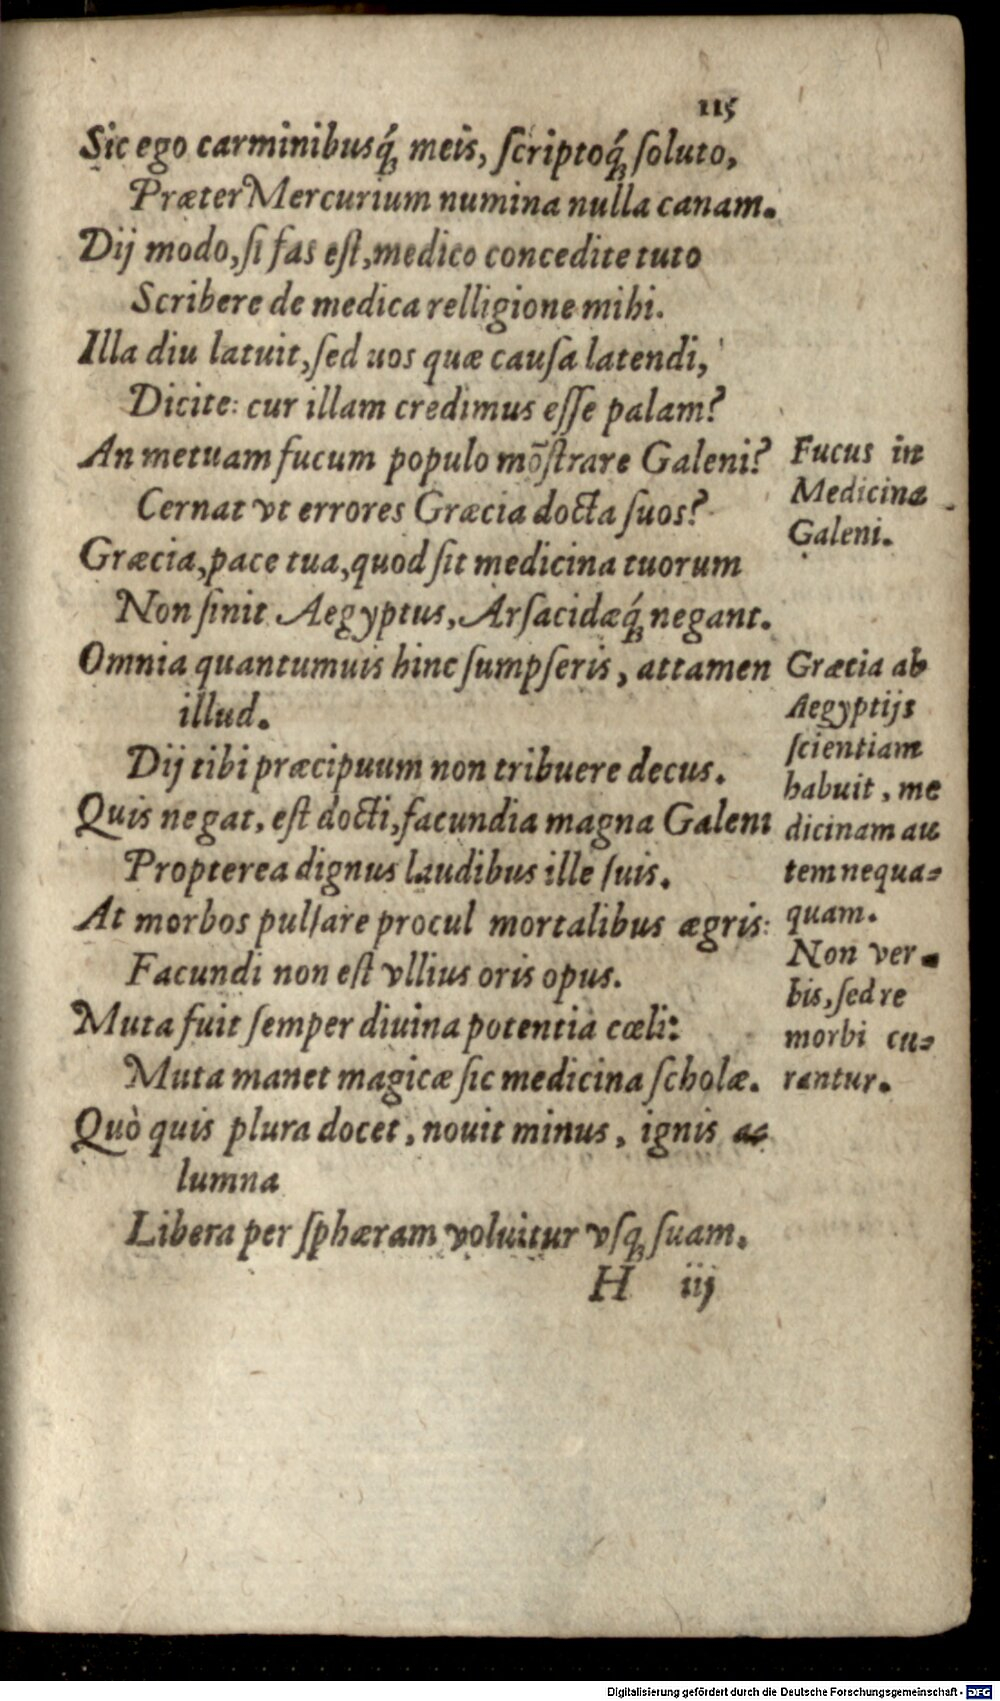 115
Sic ego carminibusq́; meis, ſcriptoq́; ſoluto,
Præter Mercurium numina nulla canam.
Dij modo, ſi fas eſt, medico concedite tuto
Scribere de medica relligione mihi.
Illa diu latuit, ſed uos quæ cauſa latendi,
Dicite: cur illam credimus eſſe palam?
An metuam fucum populo mōſtrare Galeni?
Cernat vt errores Græcia docta ſuos?
Græcia, pace tua, quod ſit medicina tuorum
Non ſinit Aegyptus, Arſacidæq́; negant.
Omnia quantumuis hinc ſumpſeris, attamen
illud.
Dij tibi præcipuum non tribuere decus.
Quis negat, eſt docti, facundia magna Galeni
Propterea dignus laudibus ille ſuis.
At morbos pulſare procul mortalibus ægris:
Facundi non eſt vllius oris opus.
Muta fuit ſemper diuina potentia cœli:
Muta manet magicæ ſic medicina ſcholæ.
Quò quis plura docet, nouit minus, ignis a⸗
lumna
Libera per ſphæram voluitur vſq; ſuam.
H iij
Fucus in
Medicina
Galeni.
Græcia ab
Aegyptijs
ſcientiam
habuit, me
dicinam au
tem nequa⸗
quam.
Non ver⸗
bis, ſed re
morbi cu⸗
rantur.
Digitalisierung gefördert durch die Deutsche Forschungsgemeinschaft - DFG